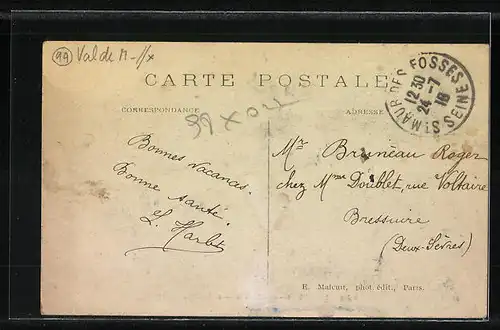 99 Val de M
CARTE POSTALE
ST MAUR DES FOSSES SEINE
12 30
24 - 7
16
CORRESPONDANCE
ADRESSE
Bonnes vacances.
Bonne santé.
Mr Bruneau Roger
chez Mme Doublet, rue Voltaire
Bressuire
(Deux-Sèvres)
E. Malcuit, phot. édit., Paris.